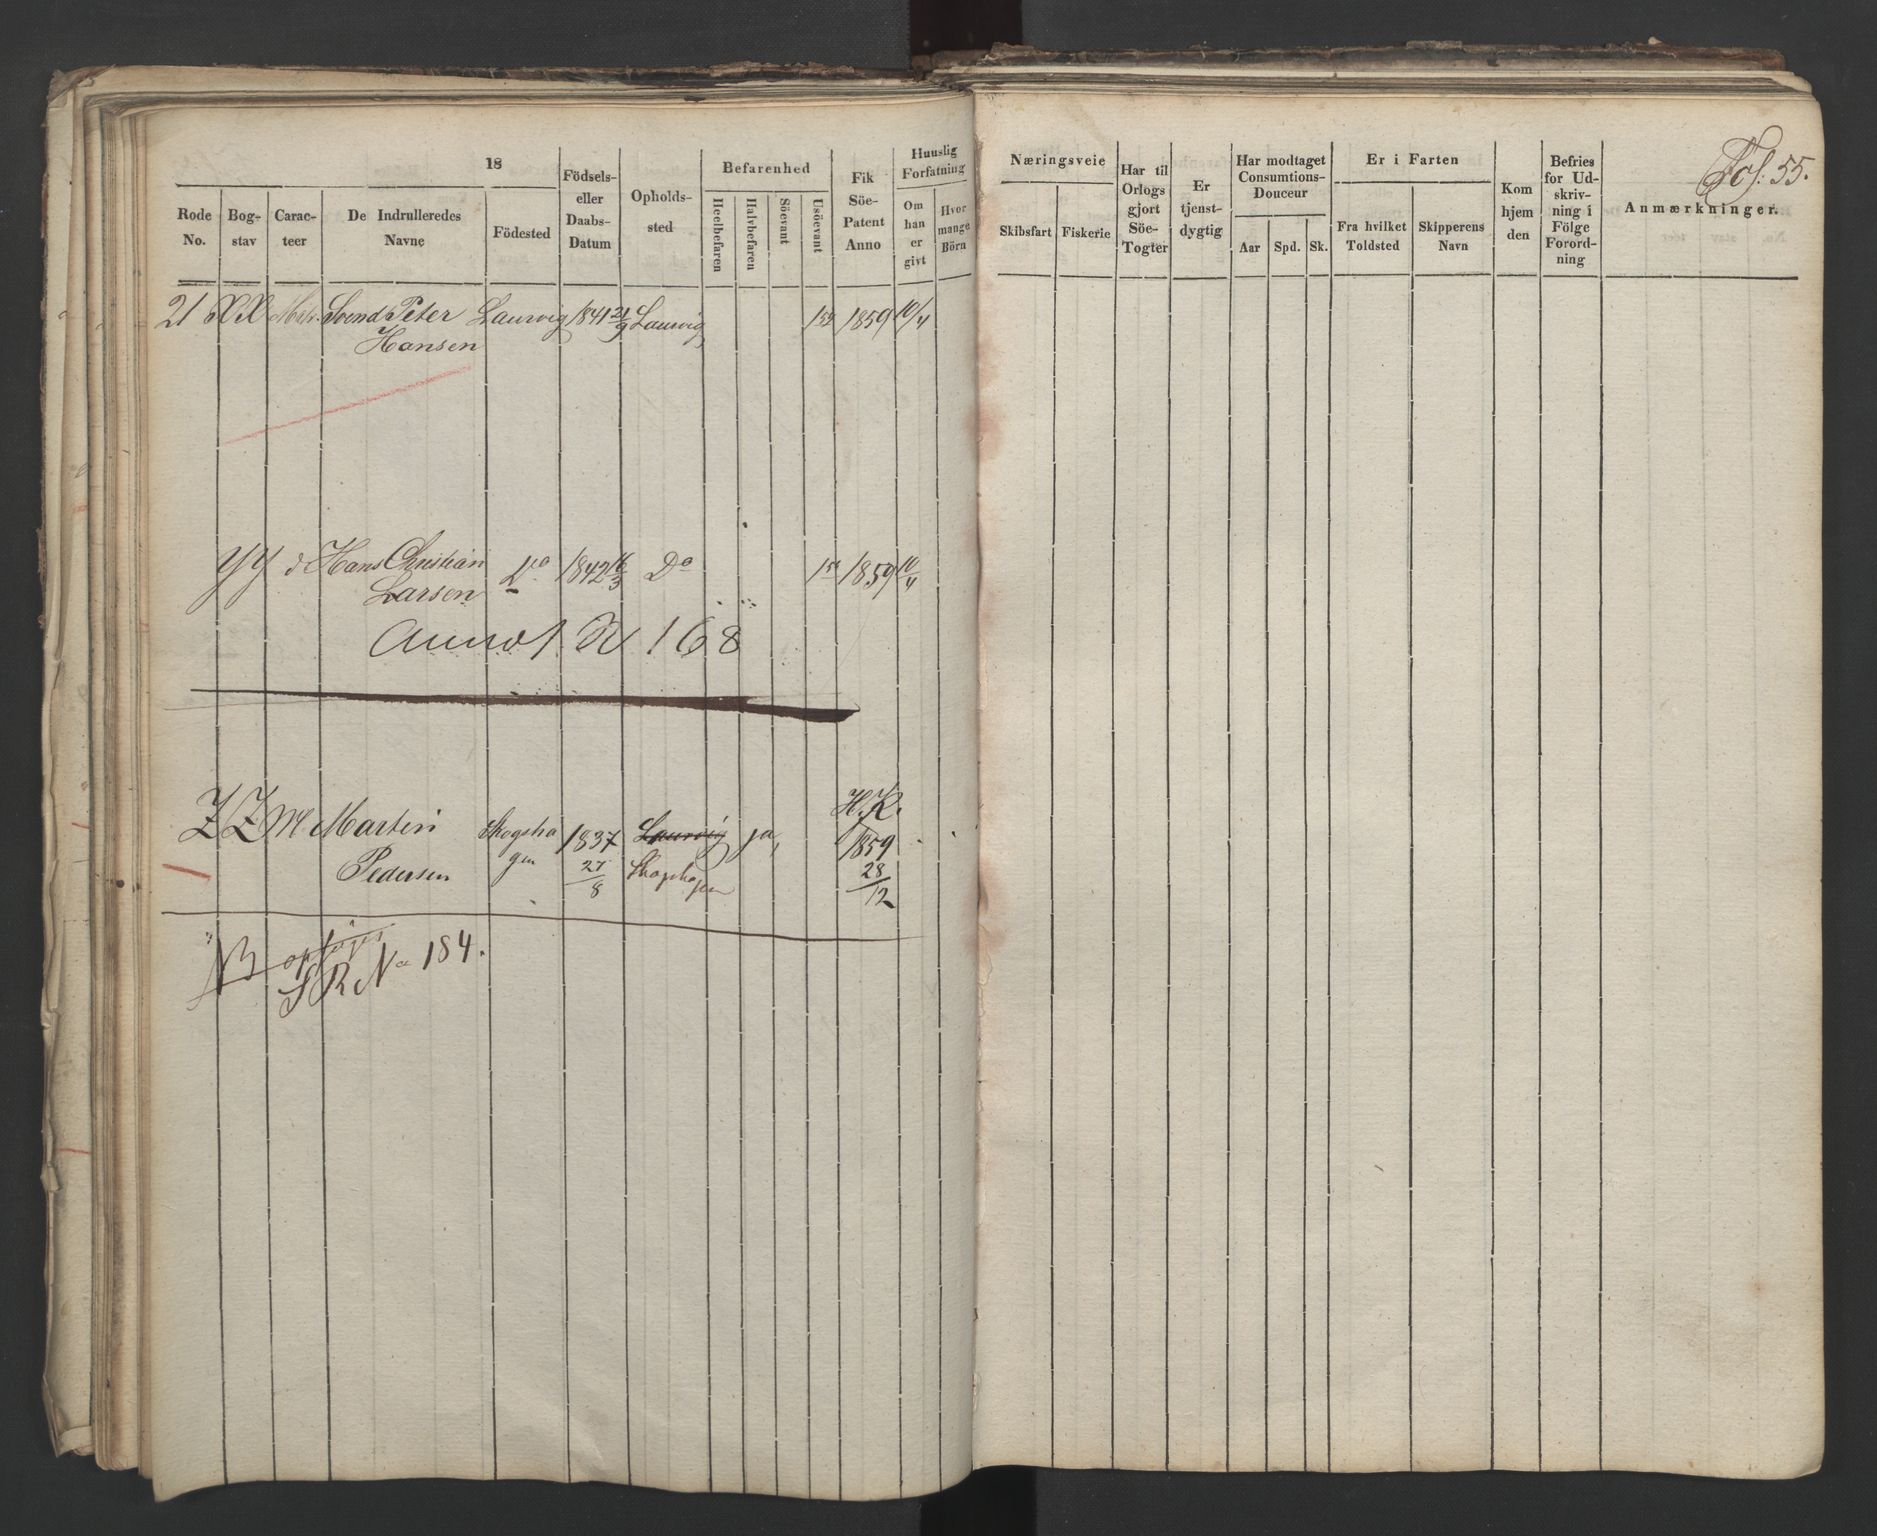 18
Rode No.
Bogstav
Caracteer
De Indrulleredes Navne
Födested
Födsels- eller Daabs-Datum
Opholdssted
Befarenhed
Heelbefaren
Halvbefaren
Söevant
Usöevant
Fik Söe-Patent Anno
Huuslig Forfatning
Om han er givt
Hvor mange Börn
Næringsveie
Skibsfart
Fiskerie
Har til Orlogs gjort Söe-Togter
Er tjenst-dygtig
Har modtaget Consumtions-Douceur
Aar
Spd.
Sk.
Er i Farten
Fra hvilket Toldsted
Skipperens Navn
Kom hjem den
Befries for Ud-skriv-ning i Fölge Forord-ning
Anmærkninger.
Fol. 55.
21 XX Mtr. Svend Peter Laurvig 1841 21/9 Laurvig 1859 10/4
Hansen
YY d Hans Christian Do 1842 16/3 Do 1859 10/4
Larsen
Annot N 168
H.K.
ZZ Martin Skogsha 1837 Laurvig ja, 1859
Pedersen gen 27/8 Skogshagen 28/12
NB opföjes
SR No 184.